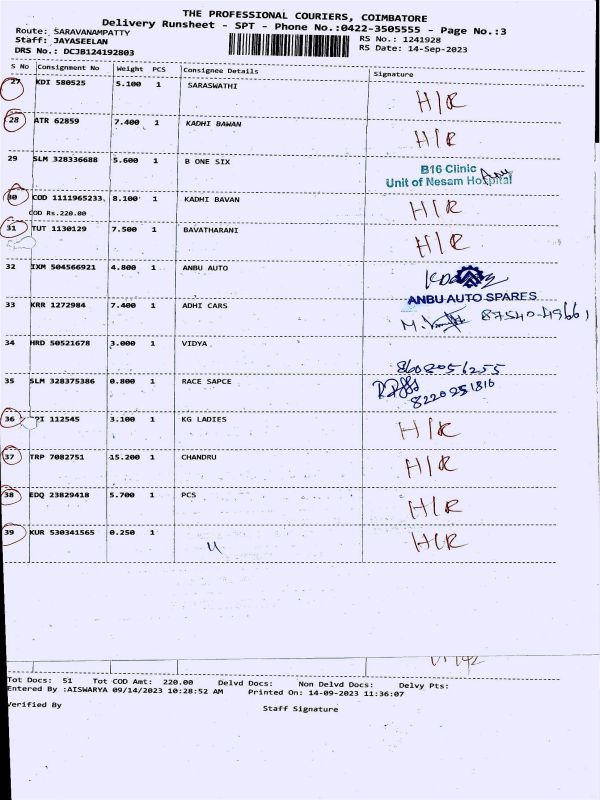 THE PROFESSIONAL COURIERS, COIMBATORE
Delivery Runsheet - SPT - Phone No.:0422-3505555 - Page No.:3
Route: SARAVANAMPATTY RS No.: 1241928
Staff: JAYASEELAN RS Date: 14-Sep-2023
DRS No.: DCJB124192803
S No Consignment No Weight PCS Consignee Details Signature
27 KDI 580525 5.100 1 SARASWATHI H/R
28 ATR 62859 7.400 1 KADHI BAWAN H/R
29 SLM 328336688 5.600 1 B ONE SIX
B16 Clinic
Unit of Nesam Hospital
30 COD 1111965233, 8.100 1 KADHI BAVAN H/R
COD Rs.220.00
31 TUT 1130129 7.500 1 BAVATHARANI H/R
32 IXM 504566921 4.800 1 ANBU AUTO
ANBU AUTO SPARES
33 KRR 1272984 7.400 1 ADHI CARS 87540-49661
34 HRD 50521678 3.000 1 VIDYA
8608056255
35 SLM 328375386 0.800 1 RACE SAPCE 8220251816
36 PI 112545 3.100 1 KG LADIES H/R
37 TRP 7082751 15.200 1 CHANDRU H/R
38 EDQ 23829418 5.700 1 PCS H/R
39 KUR 530341565 0.250 1 11 H/R
Tot Docs: 51 Tot COD Amt: 220.00 Delvd Docs: Non Delvd Docs: Delvy Pts:
Entered By :AISWARYA 09/14/2023 10:28:52 AM Printed On: 14-09-2023 11:36:07
Verified By Staff Signature